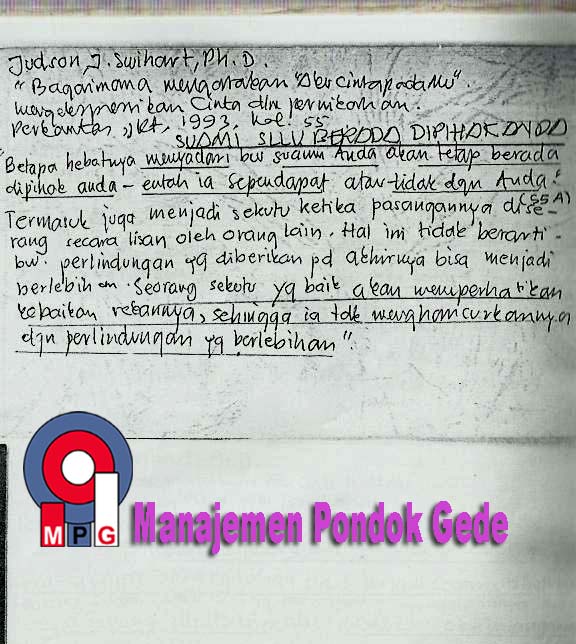 Judson, J. Swihart, Ph. D.
"Bagaimana mengatakan "Aku Cinta padaMu".
mengekspresikan Cinta dlm pernikahan.
Perkantas, Jkt, 1993, hal. 55
SUAMI SLLU BERADA DIPIHAK ANDA
"Betapa hebatnya menyadari bw suami Anda akan tetap berada
dipihak anda - entah ia sependapat atau tidak dgn Anda!
(55A)
Termasuk juga menjadi sekutu ketika pasangannya dise-
rang secara lisan oleh orang lain. Hal ini tidak berarti
bw. perlindungan yg diberikan pd akhirnya bisa menjadi
berlebihan. Seorang sekutu yg baik akan memperhatikan
kebaikan rekannya, sehingga ia tdk menghancurkannya
dgn perlindungan yg berlebihan".
MPG
Manajemen Pondok Gede